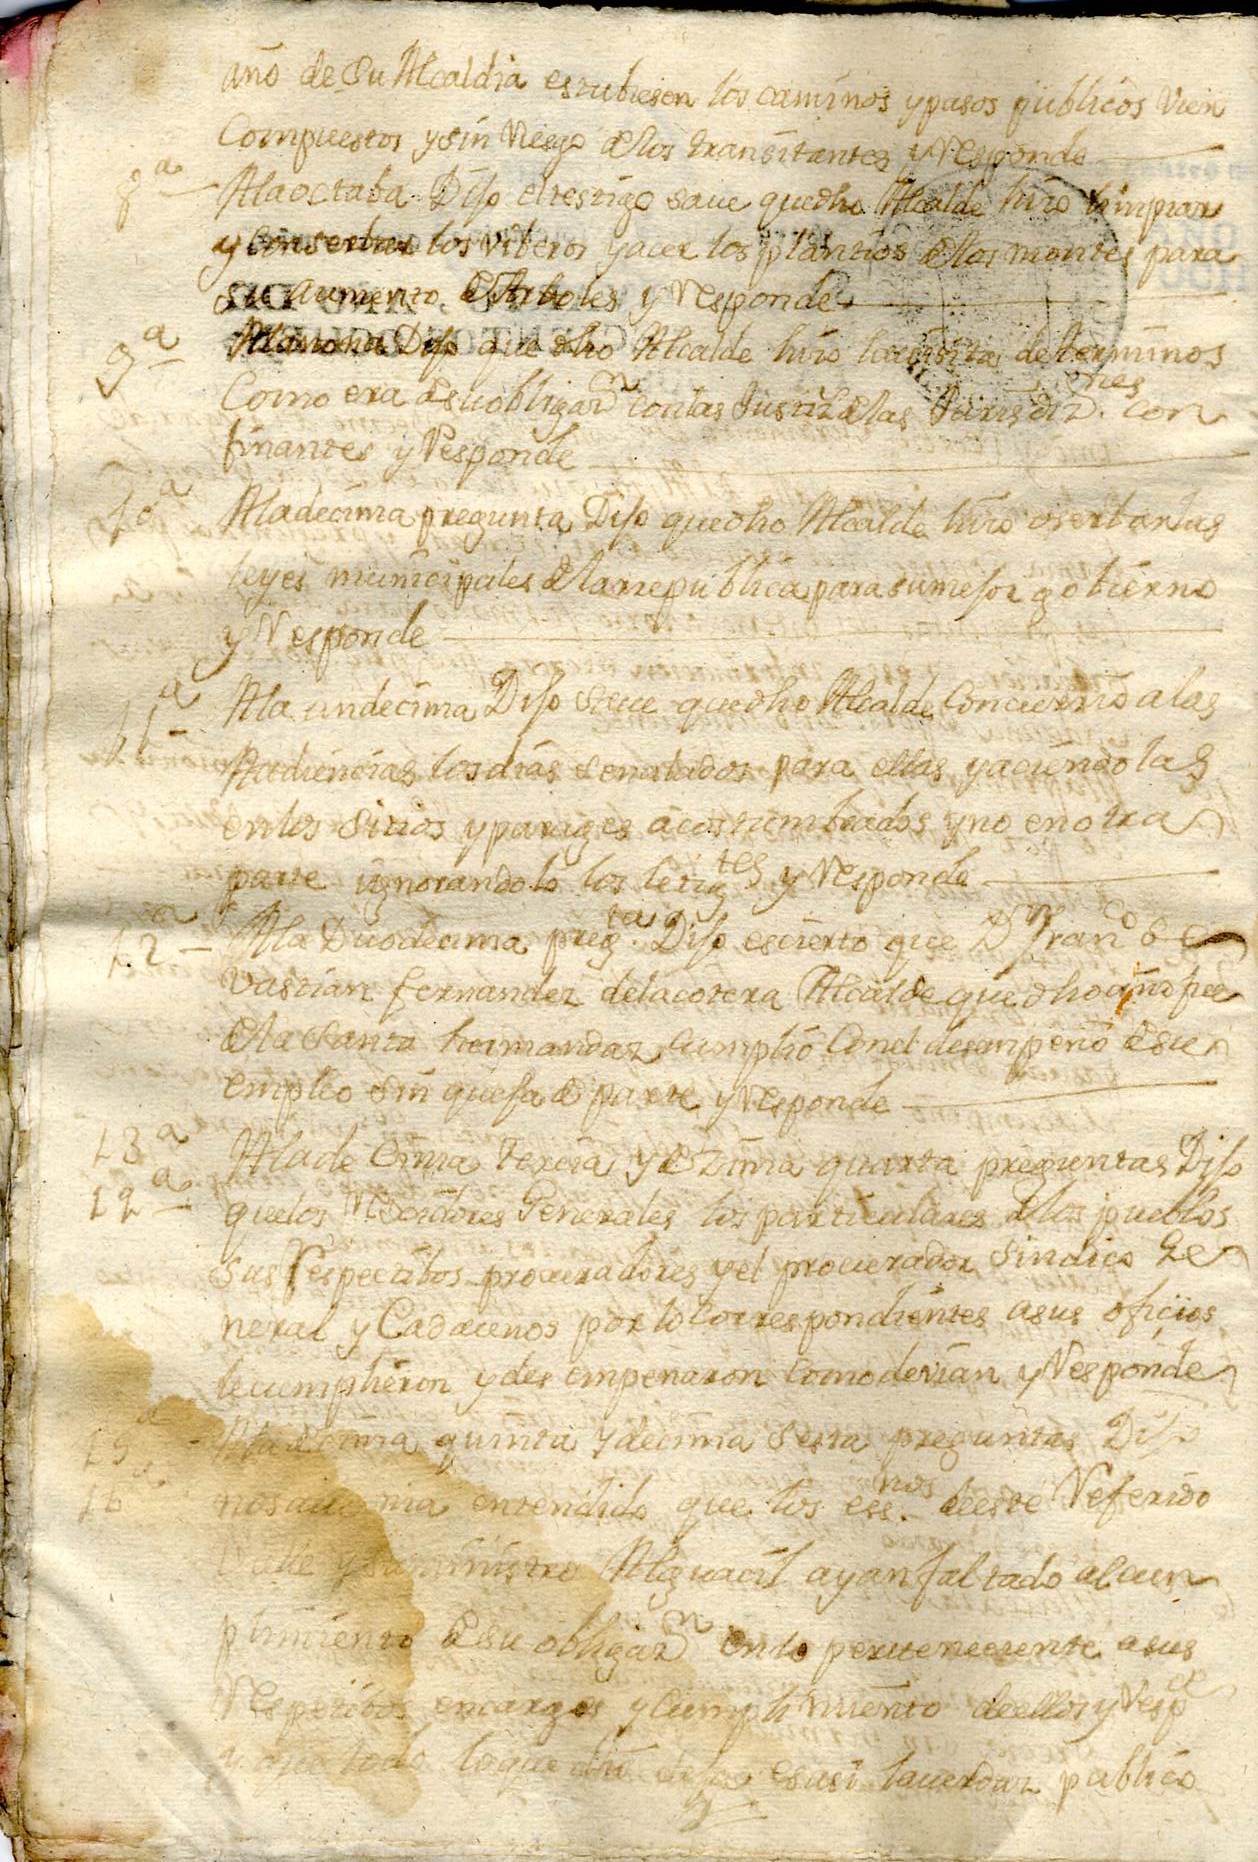 año de su Alcaldia estubiesen los caminos y pasos publicos vien
Compuestos y sin Riesgo de los transitantes y Responde
8ª Ala octaba Dijo el testigo save que dho Alcalde hizo limpiar
y conserbar los viberos y acer los plantios de los montes para
su aumento de Arboles y Responde
9ª Ala nona Dijo que dho Alcalde hizo la visita de terminos
Como era de su obligazn con las Justiz de las Jurisdiznes con
finantes y Responde
10ª Ala decima pregunta Dijo que dho Alcalde hizo oserbar las
leyes municipales de la rrepublica para su mejor gobierno
y Responde
11ª Ala undecima Dijo save que dho Alcalde Concurrio a las
Audiencias los dias señalados para ellas y aciendolas
en los sitios y parages acostumbrados y no en otra
parte ignorandolo los letigtes y Responde
12ª Ala Duodecima pregta Dijo es cierto que Dn Franco Se
vastian fernandez de la cotera Alcalde que dho año fue
de la Santa hermandaz cumplio Con el desempeño de su
empleo sin queja de parte y Responde
13ª Ala de Cima tercia y de zima quarta preguntas Dijo
14ª que los Rexidores Generales los particulares de los pueblos
sus Respectibos procuradores y el procurador Sindico Ge
neral y Cada cunos por lo correspondientes a sus ofizios
le cumplieron y desempeñaron como devian y Responde
15ª Ala decima quinta y decima sesta preguntas Dijo
16ª no save nia entendido que los essnos deeste Referido
valle y su ministro Alguacil ayan faltado al cun
plimiento de su obligazn en lo perteneciente a sus
Respetibos encargos y cumplimiento de ellos y Respde
y que todo lo que dijo es asi la verdaz publico